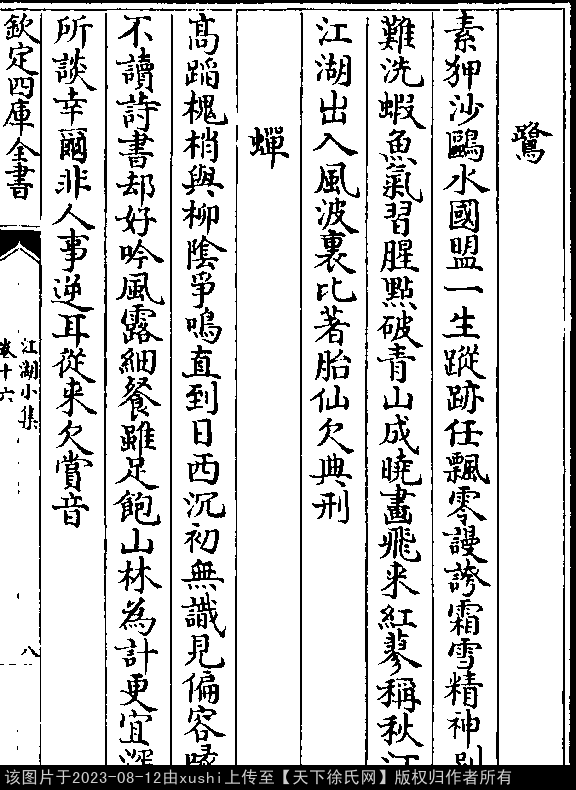 鷺
素狎沙鷗水國盟一生蹤跡任飄零謾誇霜雪精神別
難洗蝦魚氣習腥點破青山成曉畫飛来紅蓼稱秋江
江湖出入風波裏比著胎仙欠典刑
蟬
髙蹈槐梢與柳陰爭鳴直到日西沉初無識見偏容噪
不讀詩書却好吟風露細餐雖足飽山林為計更宜深
所談幸爾非人事逆耳從来欠賞音
欽定四庫全書
江湖小集
卷十六
八
该图片于2023-08-12由xushi上传至【天下徐氏网】版权归作者所有